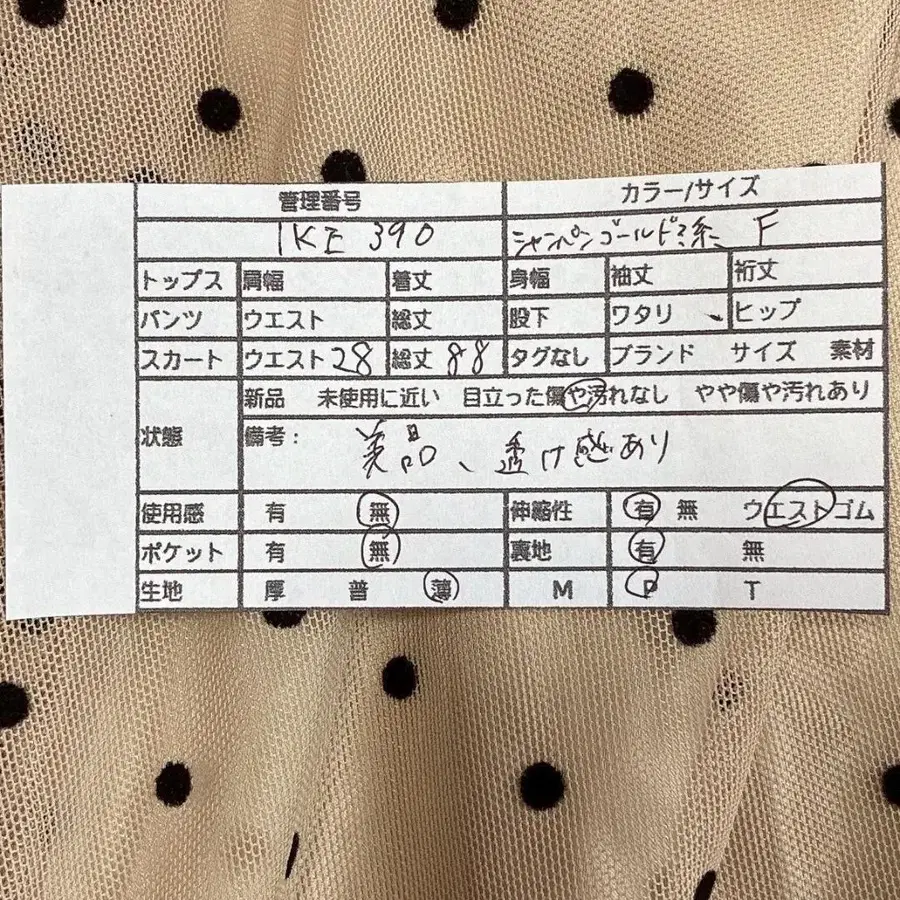 管理番号 カラー/サイズ
IKE 390 シャンペンゴールド系 F
トップス 肩幅 着丈 身幅 袖丈 裄丈
パンツ ウエスト 総丈 股下 ワタリ ヒップ
スカート ウエスト28 総丈 88 タグなし ブランド サイズ 素材
状態 新品 未使用に近い 目立った傷や汚れなし やや傷や汚れあり
備考: 美品、透け感あり
使用感 有 無 伸縮性 有 無 ウエストゴム
ポケット 有 無 裏地 有 無
生地 厚 普 薄 M P T